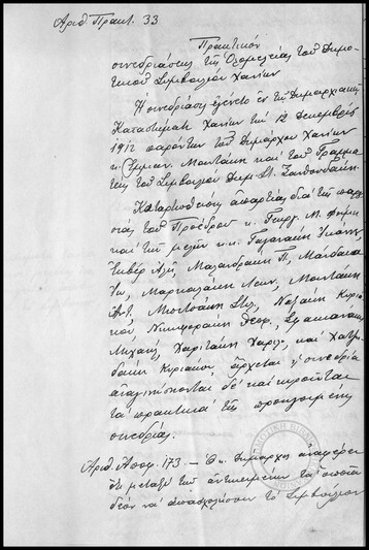 Αριθ. Πρακτ. 33
Πρακτικόν
συνεδριάσεως της Ολομελείας του Δημο-
τικού Συμβουλίου Χανίων
Η συνεδρίασις εγένετο εν τω Δημαρχιακώ
Καταστήματι Χανίων την 12 Δεκεμβρίου
1912 παρόντων του Δημάρχου Χανίων
κ. Εμμαν. Μουντάκη και του Γραμμα-
τέως του Συμβουλίου Δημ. Στ. Ξανθουδάκη.
Καταρτισθείσης απαρτίας διά της παρου-
σίας του Προέδρου κ. Γεωργ. Μ.
και των μελών κ.κ. Γαγανάκη Ιωάνν.
Εκβέρ Αλή, Μαλανδράκη Π., Μάνδακα
Ιω, Μαρκουλάκη Λεων, Μουντάκη
Αντ. Μουτσάκη Στυλ, Ναξάκη Κυρια-
κού, Νικηφοράκη Θεοφ, Σφακιανάκη
Μιχαήλ, Χαριτάκη Χαριλ, και Χατζη-
δάκη Κυριάκου, άρχεται η συνεδρία
αναγινώσκονται δε και κυρούνται
τα πρακτικά της προηγουμένης
συνεδρίας.
Αριθ. Αποφ. 173 - Ο κ. Δήμαρχος αναφέρει
ότι μεταξύ των αντικειμένων τα οποία
δέον να απασχολήσουν το Συμβούλιον